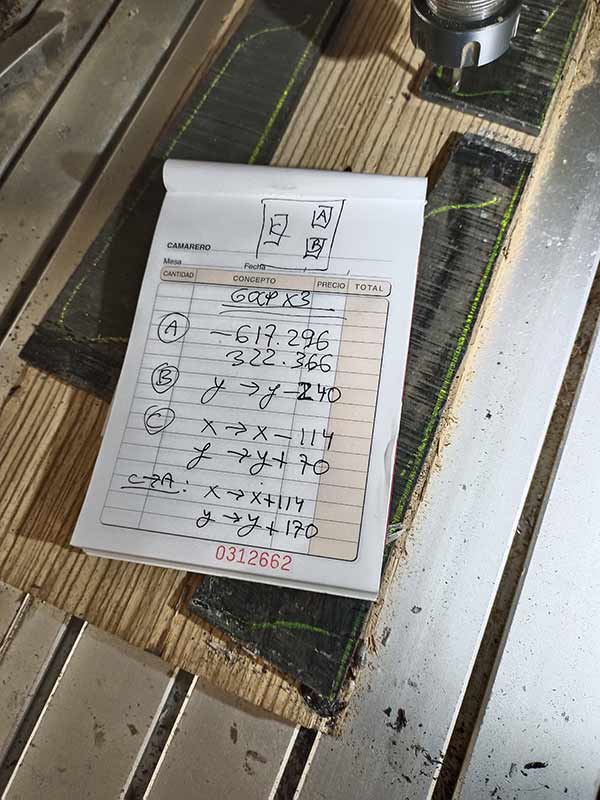 A
C
B
CAMARERO
Mesa Fecha
CANTIDAD CONCEPTO PRECIO TOTAL
A -617.296
322.366
B y → y - 240
C x → x - 114
y → y + 70
C → A: x → x + 114
y → y + 170
0312662